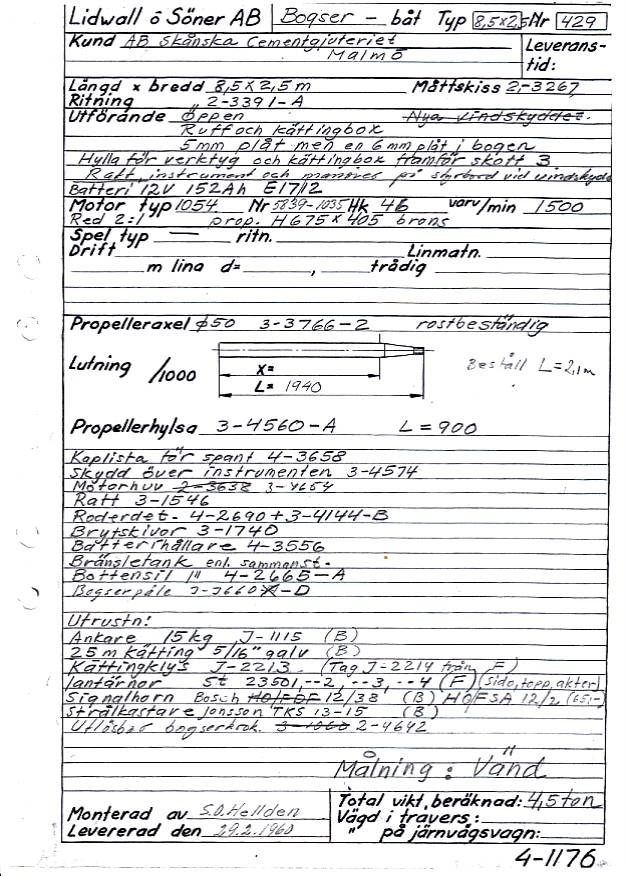 Lidwall ö Söner AB Bogser - båt Typ 8,5x2,5 Nr 429
Kund AB Skånska Cementgjuteriet
Malmö
Leverans-
tid:
Längd x bredd 8,5 x 2,5 m Måttskiss 2-3267
Ritning " 2-3391-A
Utförande Öppen Nya vindskyddet.
Ruff och kättingbox
5mm plåt men en 6mm plåt i bogen
Hylla för verktyg och kättingbox framför skott 3
Ratt, instrument och på styrbord vid vindskydd
Batteri 12V 152Ah E17/12
Motor typ 1054 Nr 5839-1035 Hk 46 varv/min 1500
Red 2:1 prop. H 675 x 405 brons
Spel typ — ritn.
Drift Linmatn.
m lina d= , trådig
Propelleraxel ϕ50 3-3766-2 rostbeständig
Lutning /1000
X=
L= 1940
Beställ L=2,1m
Propellerhylsa 3-4560-A L=900
Kaplista för spant 4-3658
Skydd över instrumenten 3-4574
Motorhuv 2-3638 3-4654
Ratt 3-1546
Roderdet. 4-2690+3-4144-B
Brytskivor 3-1740
Batterihållare 4-3556
Bränsletank enl. sammanst.
Bottensil 1" 4-2665-A
Bogserpåle J-J660-D
Utrustn:
Ankare 15kg J-1115 (B)
25m kätting 5/16" galv (B)
Kättingklys J-2213 (Tag J-2214 från F)
lantärnor St 23501,--2,--3,--4 (F) (sido, topp, akter)
Signalhorn Bosch HO/FDF 12/38 (B) HO/FSA 12/2 (65:-)
Strålkastare Jonsson TKS 13-15 (B)
Utlösbar bogserkrok. 3-1060 2-4642
Målning: Vänd
Monterad av S.O. Hellden
Levererad den 29.2.1960
Total vikt, beräknad: 4,5 ton
Vägd i travers:
" på järnvägsvagn:
4-1176